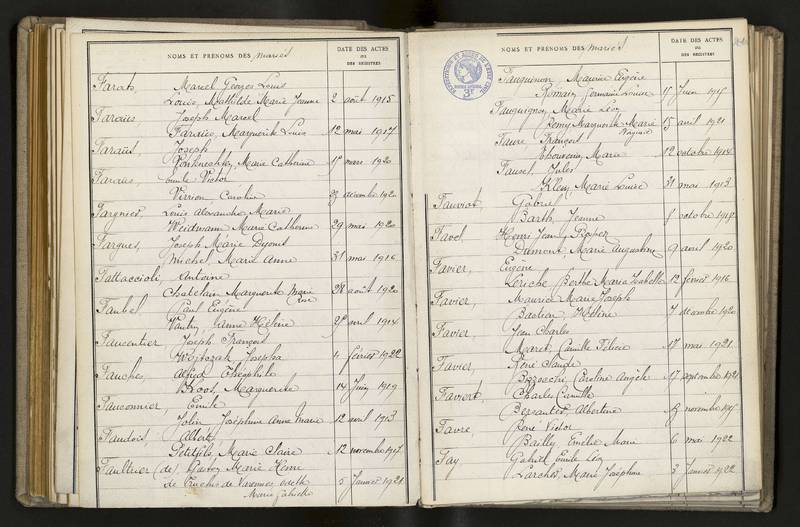 NOMS ET PRÉNOMS DES mariés
DATE DES ACTES
OU
DES REGISTRES
Farat, Marcel Georges Louis
Louis, Mathilde Marie Jeanne 2 août 1915
Faraüs Joseph Marcel
Faraüs, Marguerite Louise 12 mai 1917
Faraüs, Joseph
Marie Catherine mars 1920
Faraüs, Emile Victor
Verrion Caroline décembre 1920
Fargnier, Louis Alexandre Marie
Weidmann Marie Catherine 29 mai 1920
Fargues, Joseph Marie Dyonis
Michel Marie Anne 31 mai 1916
Fattaccioli, Antoine
Chatelain Marguerite Marie 28 août 1920
Rose
Faubel Paul Eugène
Vautry, Anne Hélène avril 1914
Faucentier Joseph François
Wojtozak, Josepha février 1922
Fauches, Alfred Théophile
Kroos, Marguerite 14 Juin 1919
Fauconnier, Emile
Jolin, Joséphine Anne Marie 12 avril 1913
Faudois, Albert
Petitfils, Marie Claire 12 novembre 1917
Faultrier (de) Gaston Marie Henri
de Cruchis de Varennes Odette 5 Janvier 1921
Marie Gabrielle
NOMS ET PRÉNOMS DES mariés
DATE DES ACTES
OU
DES REGISTRES
Fauquinon, Maurice Eugène
Romain, Germaine Louise 15 Juin 1915
Fauquignon, Marie Léon
Remy Marguerite Marie 15 avril 1921
Faure François
Marie 12 octobre 1914
Fausel, Jules
Klein, Marie Louise 31 mai 1913
Fauviot, Gabriel
Barth, Jeanne octobre
Favel Henri Jean Prosper
Dumont, Marie Augustine 9 avril 1920
Favier, Eugène
Leriche, Berthe Marie Isabelle 12 février 1916
Favier, Maurice Marie Joseph
Bastien, Hélène 7 décembre 1920
Favier, Jean Charles
Marck, Camille Félicie 17 mai 1921
Favier, René Claude
Caroline Angèle 17 septembre 1921
Favier, Charles Camille
Albertine novembre
Favre, René Victor
Bailly Emélie Marie 6 mai 1922
Fay Gabriel Emile Léon
Larcher, Marie Joséphine 3 Janvier 1922